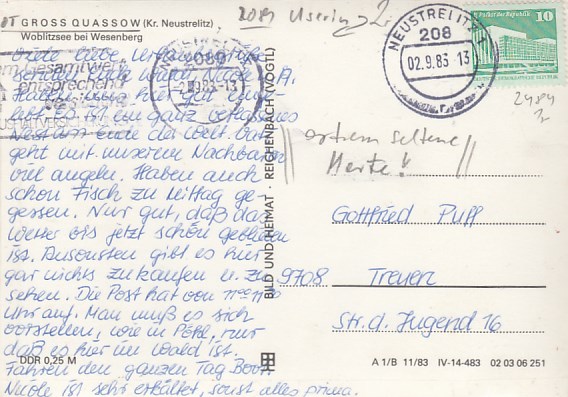 OT GROSS QUASSOW (Kr. Neustrelitz)
Woblitzsee bei Wesenberg
2081 Userin
NEUSTRELITZ 1
208
02.9.83-13
DEUTSCHE DEMOKRATISCHE REPUBLIK
10
Viele liebe Urlaubsgrüße
senden Euch
Nicole u. A.
Haben uns hier gut
ist ein ganz verlassenes
Nest am Ende der Welt.
geht mit unserem Nachbarn
viel angeln. Haben auch
schon Fisch zu Mittag ge-
gessen. Nur gut, daß das
Wetter bis jetzt schön geblieben
ist. Ansonsten gibt es hier
gar nichts zu kaufen u. zu
sehen. Die Post hat von 11⁰⁰-11³⁰
Uhr auf. Man muß es sich
vorstellen, wie in Pöhl, nur
daß es hier im Wald ist.
Fahren den ganzen Tag Boot.
Nicole ist sehr erkältet, sonst alles prima.
gesamtwert
entsprechend
089
-2.9.83-13
BILD UND HEIMAT · REICHENBACH (VOGTL)
2484
extrem seltene
Marke!
Gottfried Puff
9708 Treuen
Str. d. Jugend 16
DDR 0,25 M
A 1/B 11/83 IV-14-483 02 03 06 251